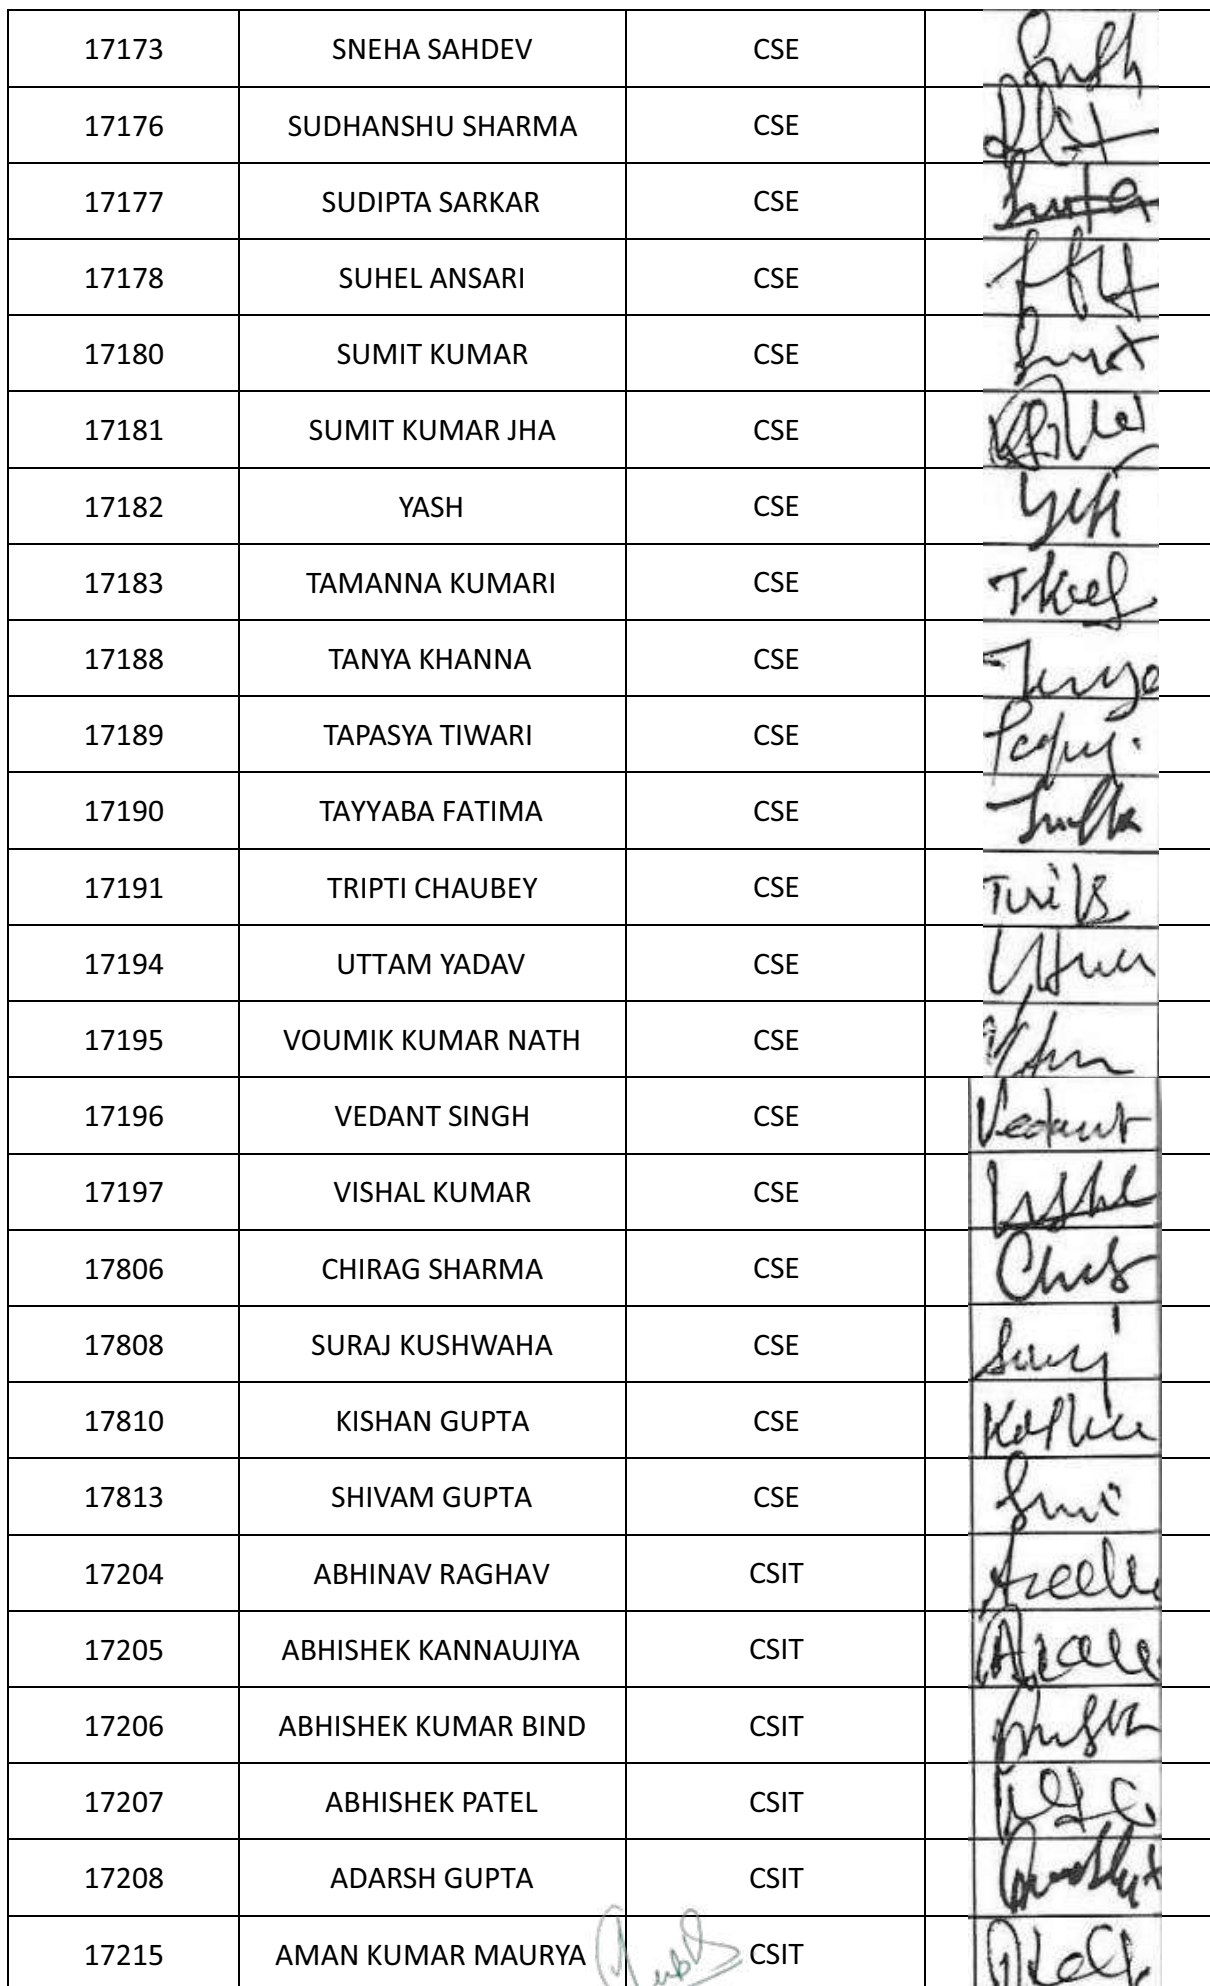 17173 SNEHA SAHDEV CSE
17176 SUDHANSHU SHARMA CSE
17177 SUDIPTA SARKAR CSE
17178 SUHEL ANSARI CSE
17180 SUMIT KUMAR CSE
17181 SUMIT KUMAR JHA CSE
17182 YASH CSE
17183 TAMANNA KUMARI CSE
17188 TANYA KHANNA CSE
17189 TAPASYA TIWARI CSE
17190 TAYYABA FATIMA CSE
17191 TRIPTI CHAUBEY CSE
17194 UTTAM YADAV CSE
17195 VOUMIK KUMAR NATH CSE
17196 VEDANT SINGH CSE Vedant
17197 VISHAL KUMAR CSE
17806 CHIRAG SHARMA CSE
17808 SURAJ KUSHWAHA CSE
17810 KISHAN GUPTA CSE
17813 SHIVAM GUPTA CSE
17204 ABHINAV RAGHAV CSIT
17205 ABHISHEK KANNAUJIYA CSIT
17206 ABHISHEK KUMAR BIND CSIT
17207 ABHISHEK PATEL CSIT
17208 ADARSH GUPTA CSIT
17215 AMAN KUMAR MAURYA CSIT